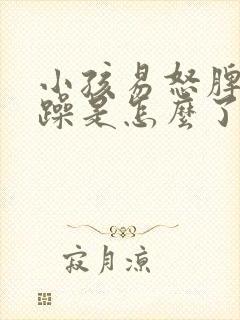 小孩易怒脾
躁是怎麼了
寂月凉